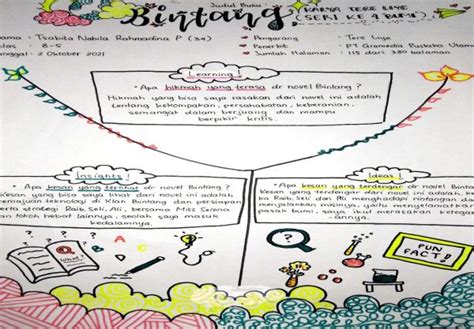 Judul Buku :
Bintang (KARYA TERE LIYE
(SERI KE 4 BUMI)
ama : Tsabita Nabila Rahmadina P (34)
elas : 8-5
anggal : 2 Oktober 2021
Pengarang : Tere Liye
Penerbit : PT Gramedia Pustaka Utama
Jumlah Halaman : 115 dari 380 halaman
Learning
• Apa hikmah yang terasa dr novel Bintang ?
Hikmah yang bisa saya rasakan dari novel ini adalah
tentang kekompakan, persahabatan, keberanian,
semangat dalam berjuang dan mampu
berpikir kritis.
Insights!
• Apa kesan yang terlihat dr novel Bintang ?
Kesan yang bisa saya lihat dari novel ini adalah
emajuan teknologi di Klan Bintang dan persiapan
serta strategi Raib, Seli, Ali, bersama Miss Selena
an tokoh hebat lainnya, seolah saya masuk
kedalamnya.
Ideas!
• Apa kesan yang terdengar dr novel Bintan
Kesan yang terdengar dari novel ini adalah
ka Raib, Seli dan Ali menghadapi rintangan da
menjalankan misinya, yaitu menyelamatkan
pasak bumi, saya ikut merasakan ketega
-an
A B C
FUN
FACT!